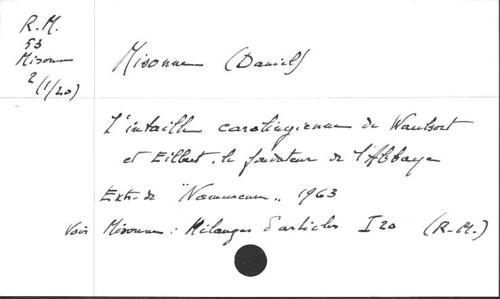 R.M.
53
Misonne
2/(1/20)
Misonne (Daniel)
L'intaille carolingienne de Waulsort
et Eilbert, le fondateur de l'Abbaye
Extr. de "Namurcum", 1963
Voir Misonne : Mélanges d'articles I 20 (R.M.)